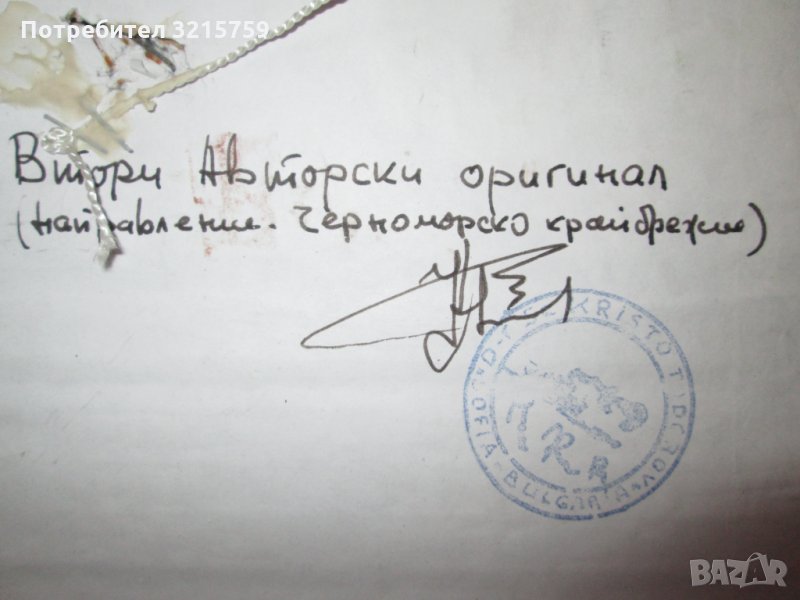 Потребител 3215759
Втори Авторски оригинал
(направление. Черноморско крайбрежие)
KRISTO TODOROV
SOFIA - BULGARIA
BAZAR